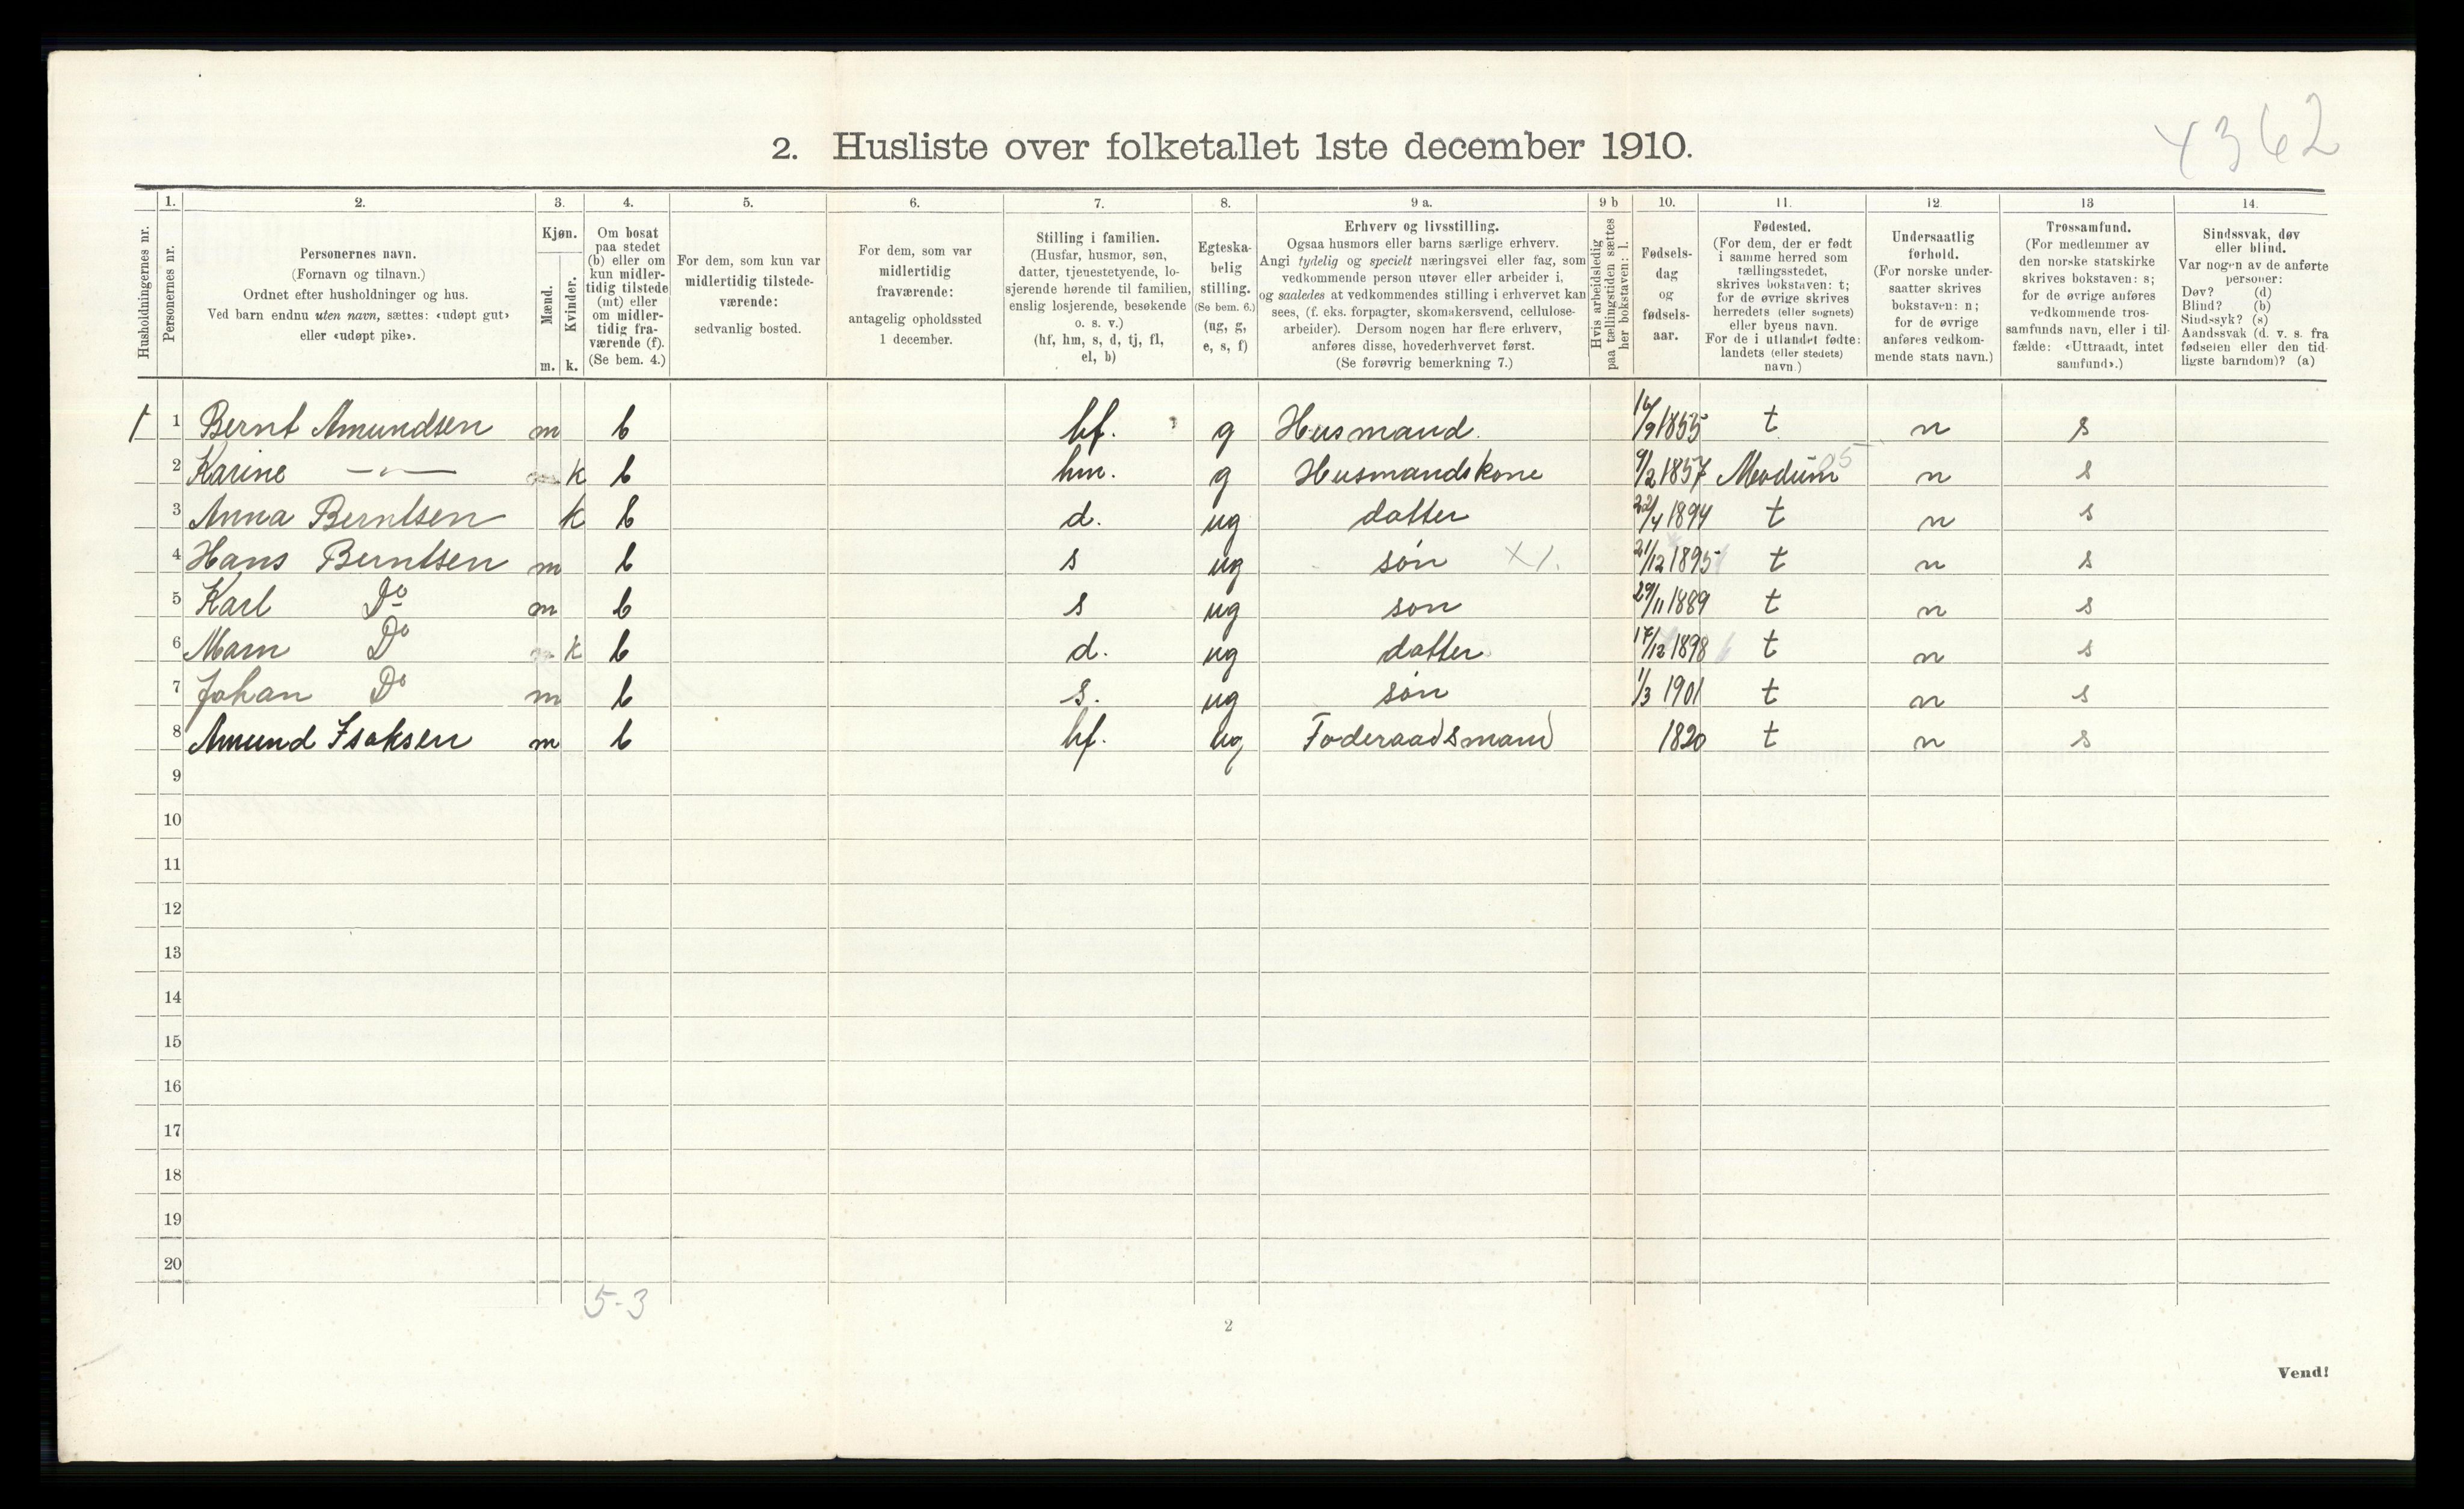 4362
2. Husliste over folketallet 1ste december 1910.
Husholdningernes nr.
1. Personernes nr.
2. Personernes navn.
(Fornavn og tilnavn.)
Ordnet efter husholdninger og hus.
Ved barn endnu uten navn, sættes: «udøpt gut»
eller «udøpt pike».
3. Kjøn.
Mænd. m.
Kvinder. k.
4. Om bosat
paa stedet
(b) eller om
kun midler-
tidig tilstede
(mt) eller
om midler-
tidig fra-
værende (f).
(Se bem. 4.)
5. For dem, som kun var
midlertidig tilstede-
værende:
sedvanlig bosted.
6. For dem, som var
midlertidig
fraværende:
antagelig opholdssted
1 december.
7. Stilling i familien.
(Husfar, husmor, søn,
datter, tjenestetyende, lo-
sjerende hørende til familien,
enslig losjerende, besøkende
o. s. v.)
(hf, hm, s, d, tj, fl,
el, b)
8. Egteska-
belig
stilling.
(Se bem. 6.)
(ug, g,
e, s, f)
9 a. Erhverv og livsstilling.
Ogsaa husmors eller barns særlige erhverv.
Angi tydelig og specielt næringsvei eller fag, som
vedkommende person utøver eller arbeider i,
og saaledes at vedkommendes stilling i erhvervet kan
sees, (f. eks. forpagter, skomakersvend, cellulose-
arbeider). Dersom nogen har flere erhverv,
anføres disse, hovederhvervet først.
(Se forøvrig bemerkning 7.)
9 b Hvis arbeidsledig
paa tællingstiden sættes
her bokstaven: l.
10. Fødsels-
dag
og
fødsels-
aar.
11. Fødested.
(For dem, der er født
i samme herred som
tællingsstedet,
skrives bokstaven: t;
for de øvrige skrives
herredets (eller sognets)
eller byens navn.
For de i utlandet fødte:
landets (eller stedets)
navn.)
12. Undersaatlig
forhold.
(For norske under-
saatter skrives
bokstaven: n;
for de øvrige
anføres vedkom-
mende stats navn.)
13 Trossamfund.
(For medlemmer av
den norske statskirke
skrives bokstaven: s;
for de øvrige anføres
vedkommende tros-
samfunds navn, eller i til-
fælde: «Uttraadt, intet
samfund».)
14. Sindssvak, døv
eller blind.
Var nogen av de anførte
personer:
Døv? (d)
Blind? (b)
Sindssyk? (s)
Aandssvak (d. v. s. fra
fødselen eller den tid-
ligste barndom)? (a)
1 1 Bernt Amundsen m b hf. g Husmand. 16/9 1855 t n s
2 Karine —"— k b hm. g Husmandskone 9/2 1857 Modum n s
3 Anna Berntsen k b d. ug datter 22/4 1894 t n s
4 Hans Berntsen m b s ug søn X 1. 21/12 1895 t n s
5 Karl Do m b s ug søn 29/11 1889 t n s
6 Marn Do k b d. ug datter 17/12 1898 t n s
7 Johan Do m b s. ug søn 1/3 1901 t n s
8 Amund Isaksen m b hf. ug Foderaadsmand 1820 t n s
9
10
11
12
13
14
15
16
17
18
19
20
5-3
2
Vend!